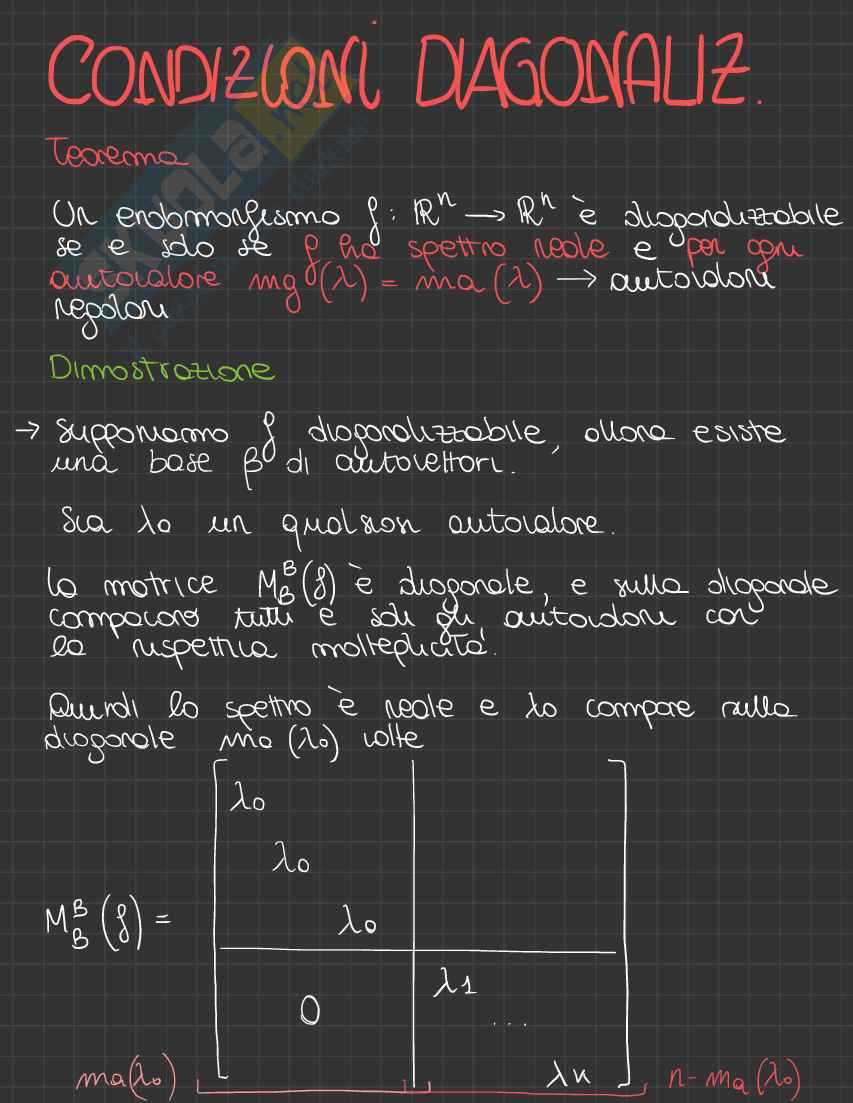 CONDIZIONI DIAGONALIZ.
Teorema
Un endomorfismo f: ℝⁿ → ℝⁿ è diagonalizzabile
se e solo se f ha spettro reale e per ogni
autovalore mg(λ) = ma(λ) → autovalori
regolari
Dimostrazione
→ Supponiamo f diagonalizzabile, allora esiste
una base β di autovettori.
Sia λ₀ un qualsiasi autovalore.
La matrice M_B^B(f) è diagonale, e sulla diagonale
compaiono tutti e soli gli autovalori con
la rispettiva molteplicità.
Quindi lo spettro è reale e λ₀ compare sulla
diagonale ma(λ₀) volte
λ₀
λ₀
M_B^B(f) = λ₀
λ1
0 ...
λκ
ma(λ₀) n-ma(λ₀)
SKUOLA.net